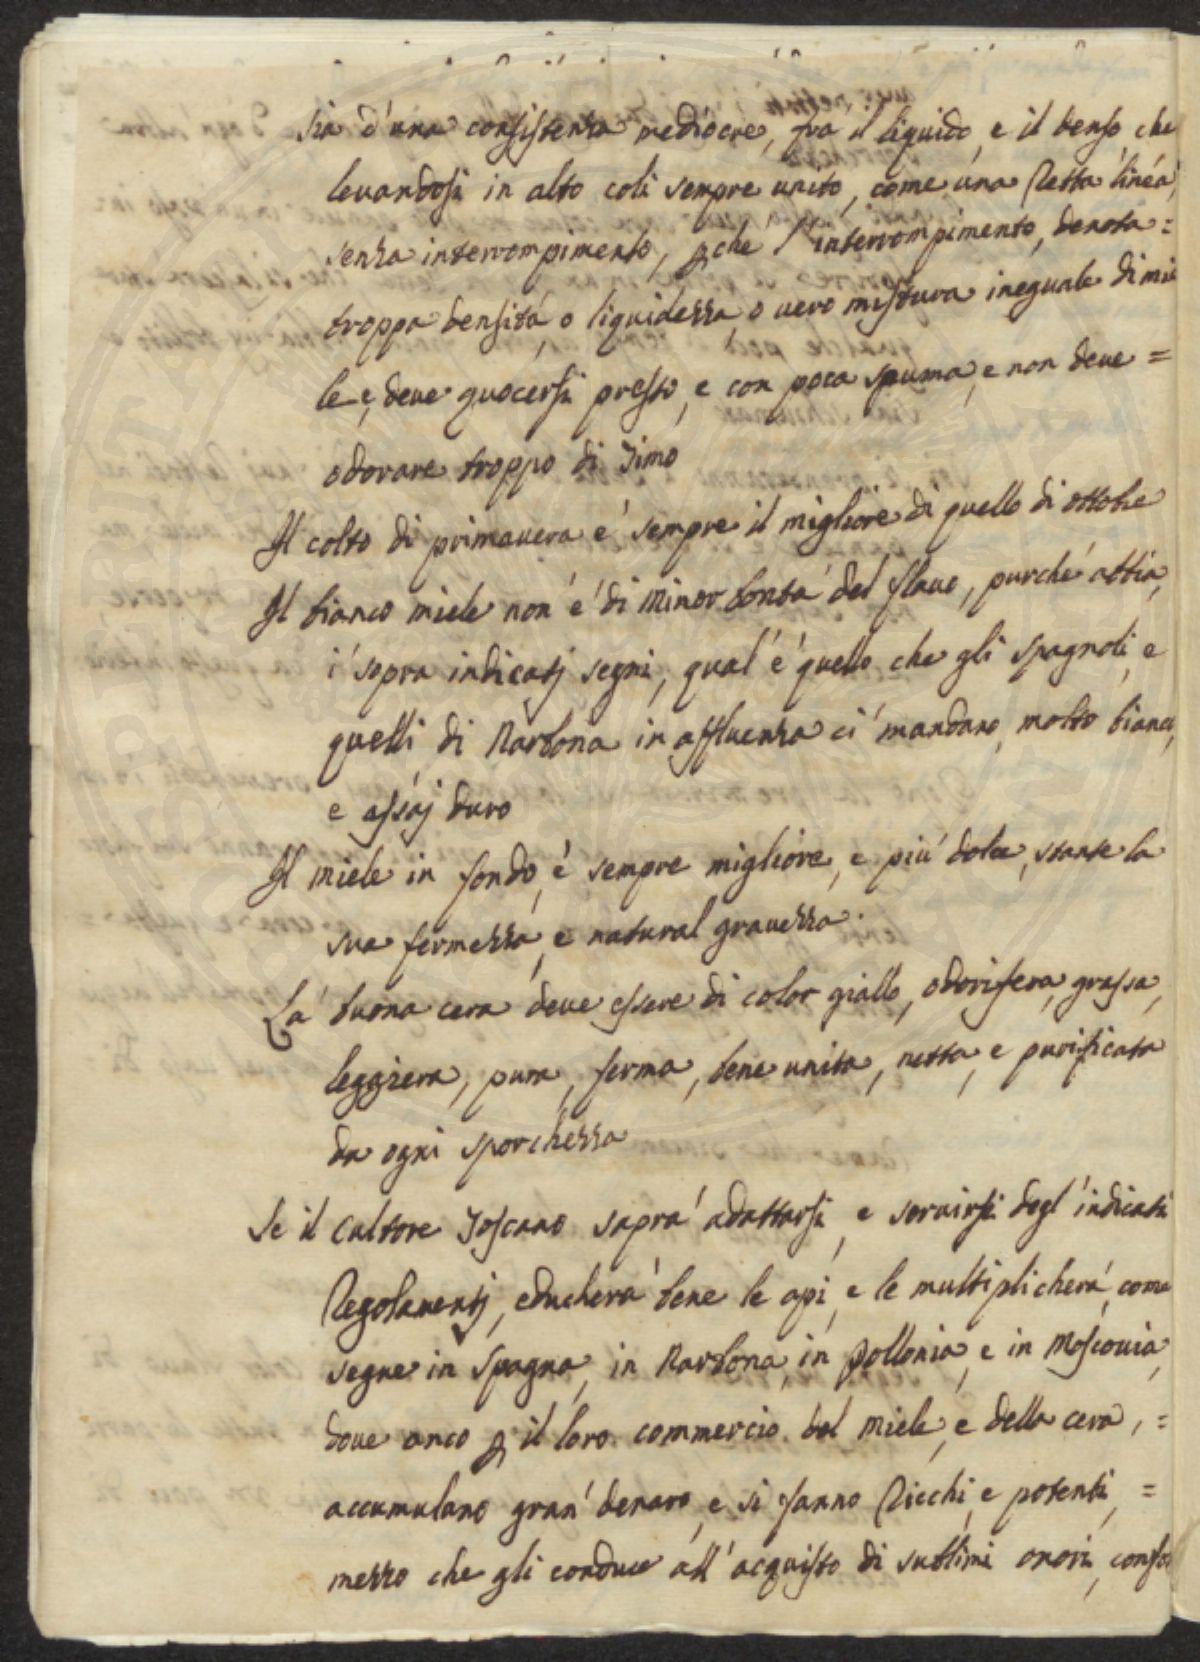 sia d'una consistenza mediocre, fra il liquido, e il denso, che
levandosi in alto coli sempre unito, come una Retta linea,
senza interrompimento, p che l'interrompimento, denota =
troppa densitá, o liquidezza, o vero mistura ineguale di mie
le e, deve quocersi presto, e con poca spuma, e non deve =
odorare troppo di Timo
Il colto di primavera é sempre il migliore di quello di ottobre
Il bianco miele non é di minor bontá del flavo, purché abbia,
i sopra indicatj segni, qual' é quello che gli spagnoli, e
quelli di Narbona in affluenza ci mandano, molto bianco,
e assaj duro
Il miele in fondo, é sempre migliore, e piú dolce, stante la
sua fermezza, e natural gravezza.
La buona cera deve essere di color giallo, odorifera, grassa,
leggiera, pura, ferma, bene unita, netta, e purificata
da ogni sporchezza
Se il Cultore Toscano saprá adattarsi, e servirsi degl' indicati
Regolamentj, educherá bene le api, e le multiplicherá, come
segue in Spagna, in Narbona, in Pollonia, e in Moscovia,
dove anco p il loro commercio del miele, e della cera, =
accumulano gran' denaro, e si fanno Ricchi, e potenti, =
mezzo che gli conduce all' acquisto di sublimi onori,